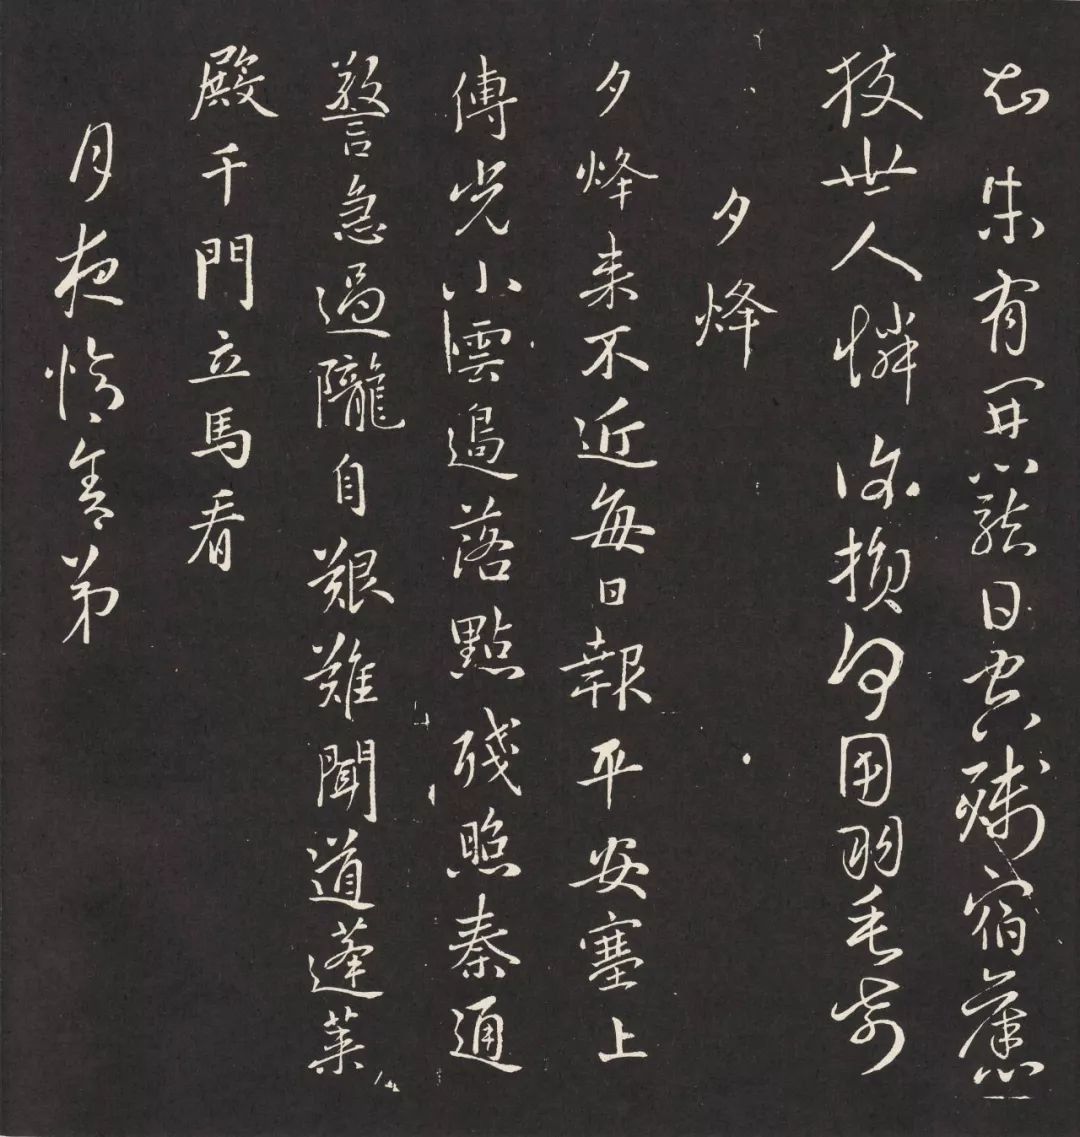 知未有開籠日空殘宿舊
枝世人憐復損何用羽毛奇
夕烽
夕烽来不近每日報平安塞上
傳光小雲邊落點殘照秦通
警急過隴自艱難聞道蓬萊
殿千門立馬看
月夜憶舍弟